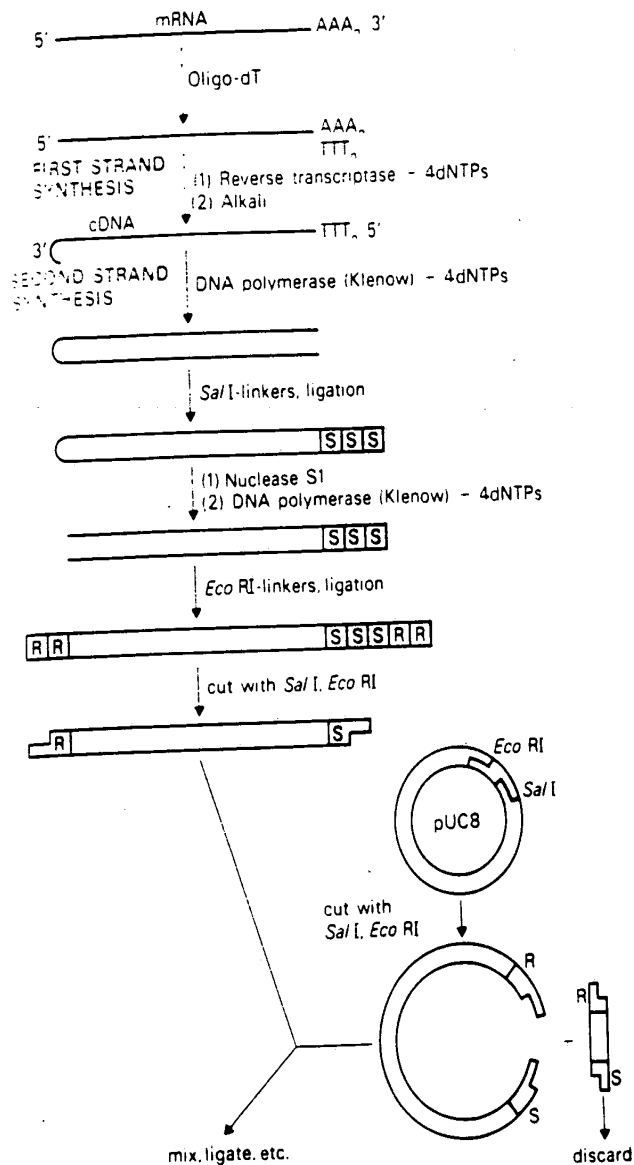 mRNA
5' AAAn 3'
Oligo-dT
5' AAAn
TTTn
FIRST STRAND
SYNTHESIS
(1) Reverse transcriptase – 4dNTPs
(2) Alkali
cDNA
3' TTTn 5'
SECOND STRAND
SYNTHESIS
DNA polymerase (Klenow) – 4dNTPs
Sal I-linkers, ligation
S S S
(1) Nuclease S1
(2) DNA polymerase (Klenow) – 4dNTPs
S S S
Eco RI-linkers, ligation
R R S S S R R
cut with Sal I, Eco RI
R S
Eco RI
Sal I
pUC8
cut with
Sal I, Eco RI
R
R
S
S
mix, ligate, etc.
discard